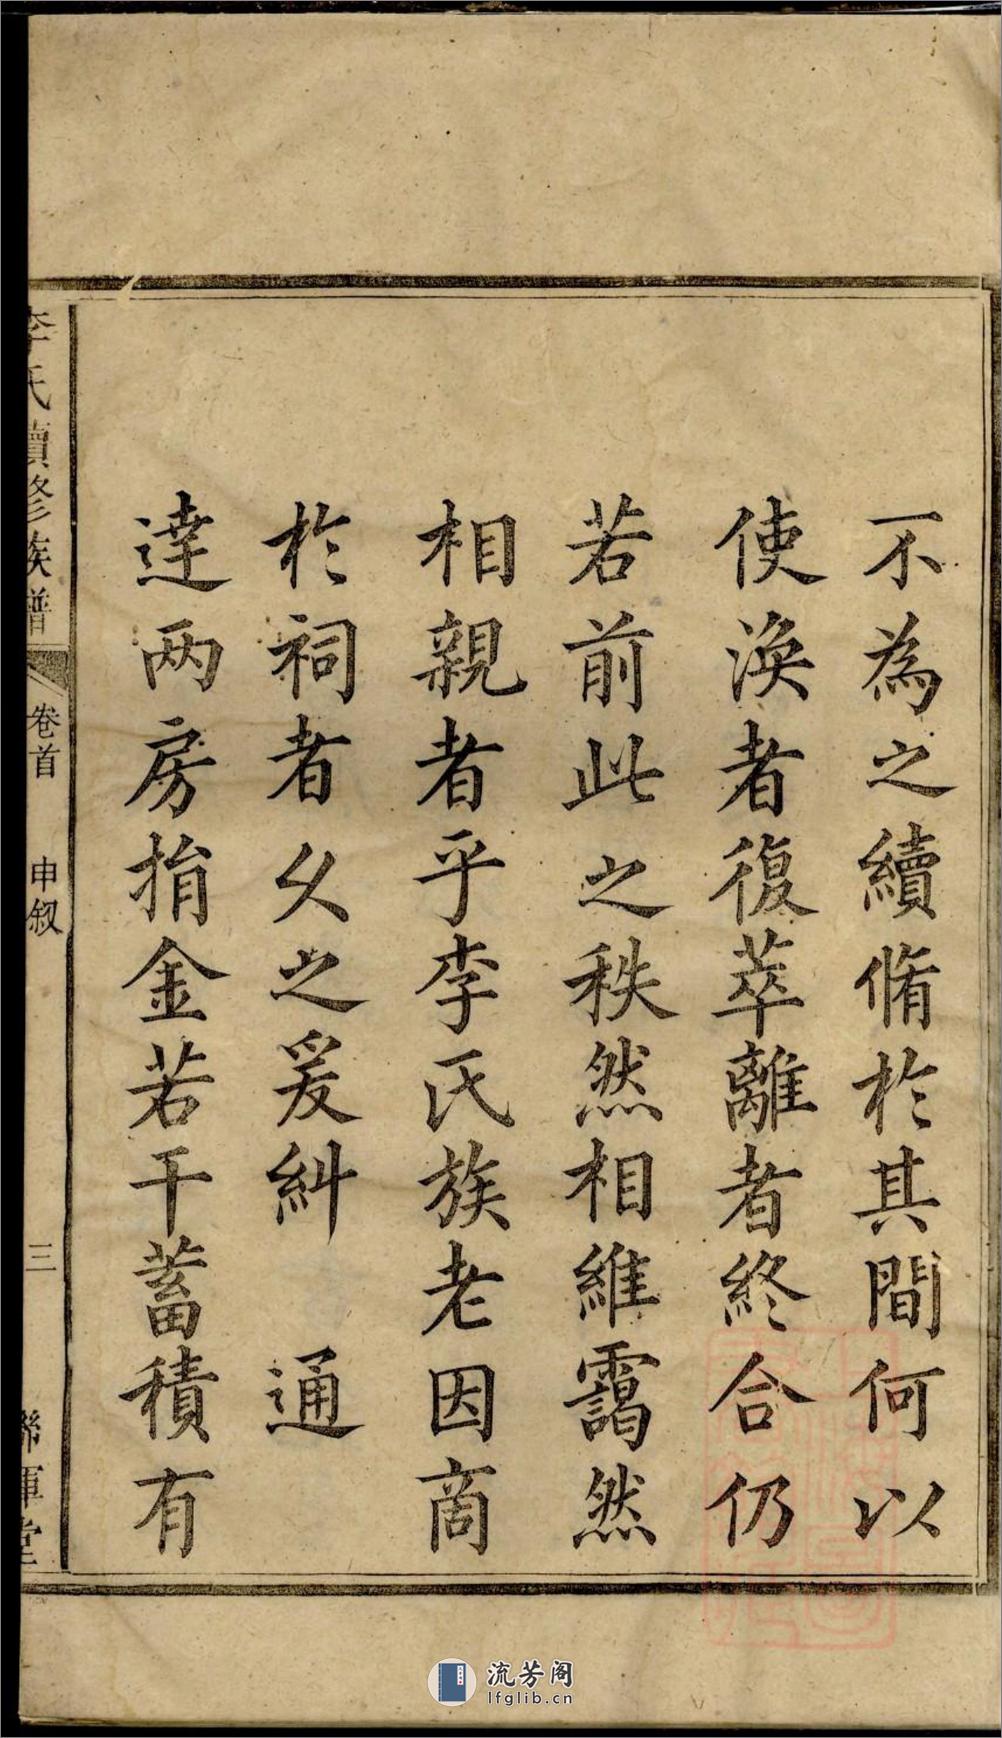 不為之續脩於其間何以
使渙者復萃離者終合仍
若前此之秩然相維靄然
相親者乎李氏族老因商
於祠者久之爰糾　通
達两房捐金若干蓄積有
李氏續修族譜
卷首
申叙
三
聯輝堂
流芳阁
lfglib.cn